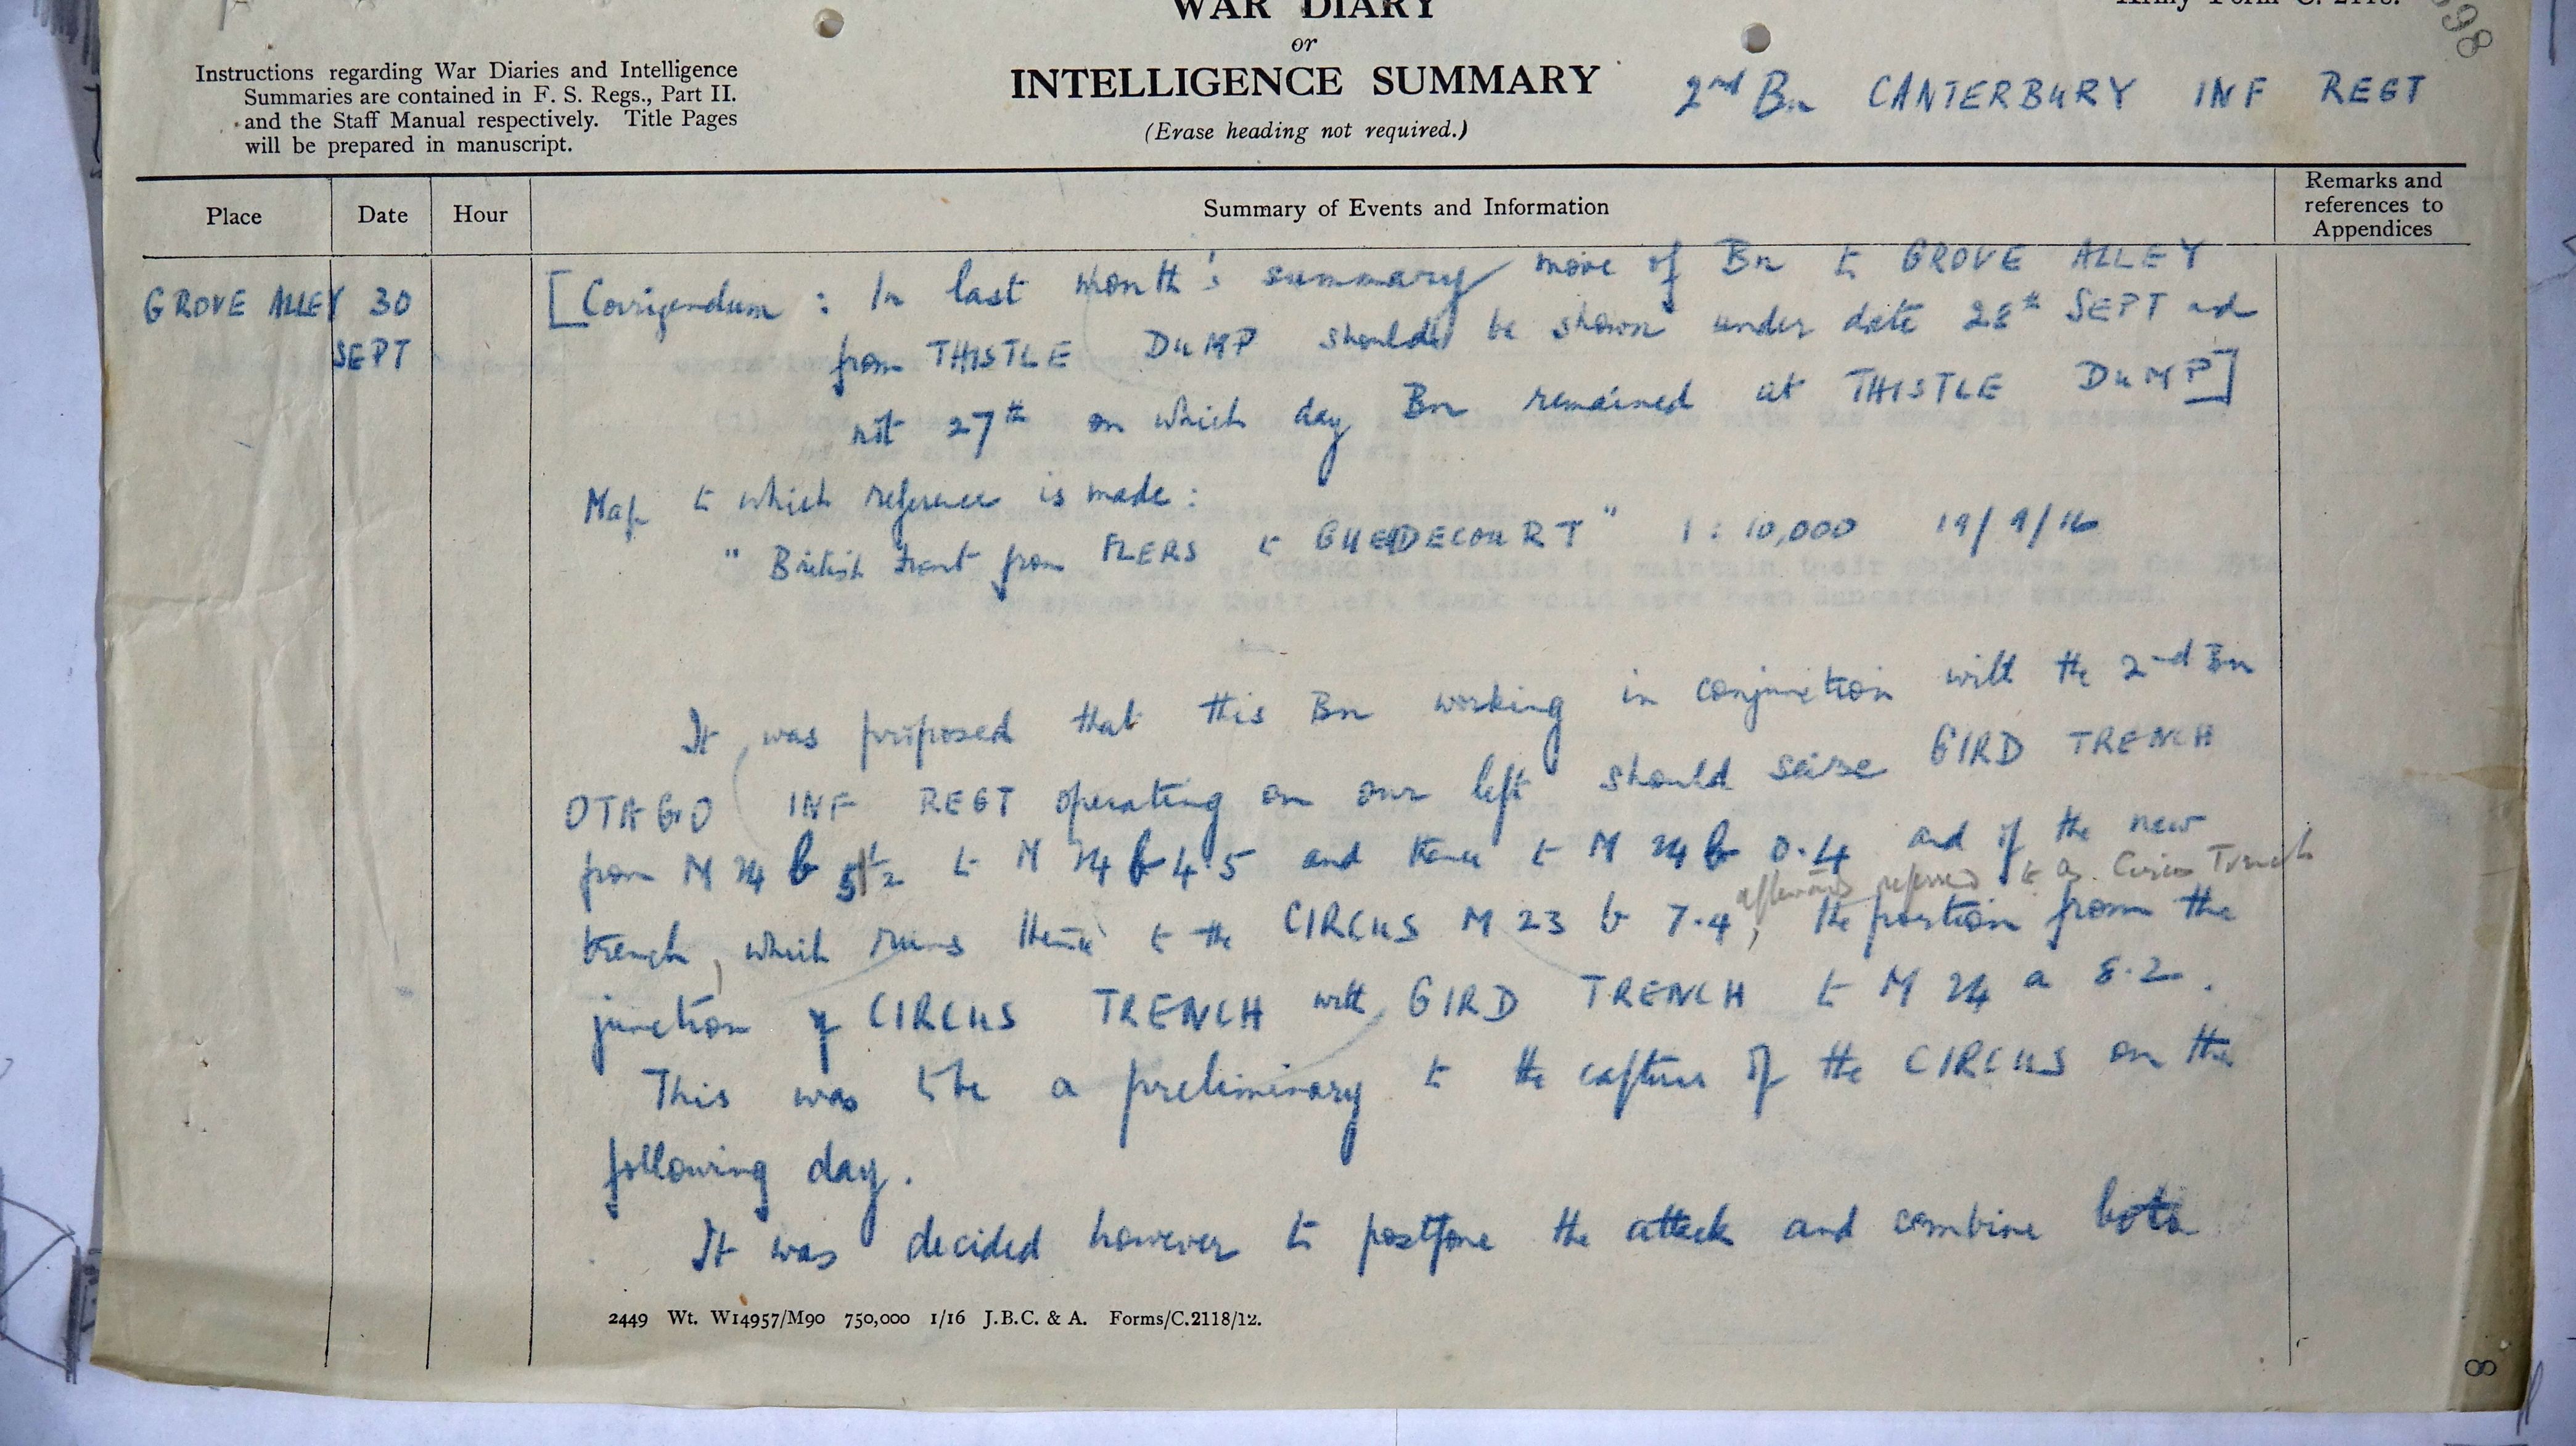 WAR DIARY
Army Form C. 2118.
or
INTELLIGENCE SUMMARY
(Erase heading not required.)
2nd Bn CANTERBURY INF REGT
Instructions regarding War Diaries and Intelligence
Summaries are contained in F. S. Regs., Part II.
and the Staff Manual respectively. Title Pages
will be prepared in manuscript.
Place Date Hour Summary of Events and Information Remarks and
references to
Appendices
GROVE ALLEY 30
SEPT
[Corrigendum : In last month's summary move of Bn to GROVE ALLEY
from THISTLE DUMP should be shown under date 28th SEPT and
not 27th on which day Bn remained at THISTLE DUMP]
Map to which reference is made :
" British front from FLERS to GUEDECOURT " 1 : 10,000 19/9/16
It was proposed that this Bn working in conjunction with the 2nd Bn
OTAGO INF REGT operating on our left should seize GIRD TRENCH
from M 24 b to M 24 b 4.5 and thence to M 24 b 0.4 and of the new
afterwards referred to as Circus Trench
trench, which runs thence to the CIRCUS M 23 b 7.4, the portion from the
junction of CIRCUS TRENCH with GIRD TRENCH to M 24 a 8.2.
This was to be a preliminary to the capture of the CIRCUS on the
following day.
It was decided however to postpone the attack and combine both
2449 Wt. W14957/M90 750,000 1/16 J.B.C. & A. Forms/C.2118/12.
8